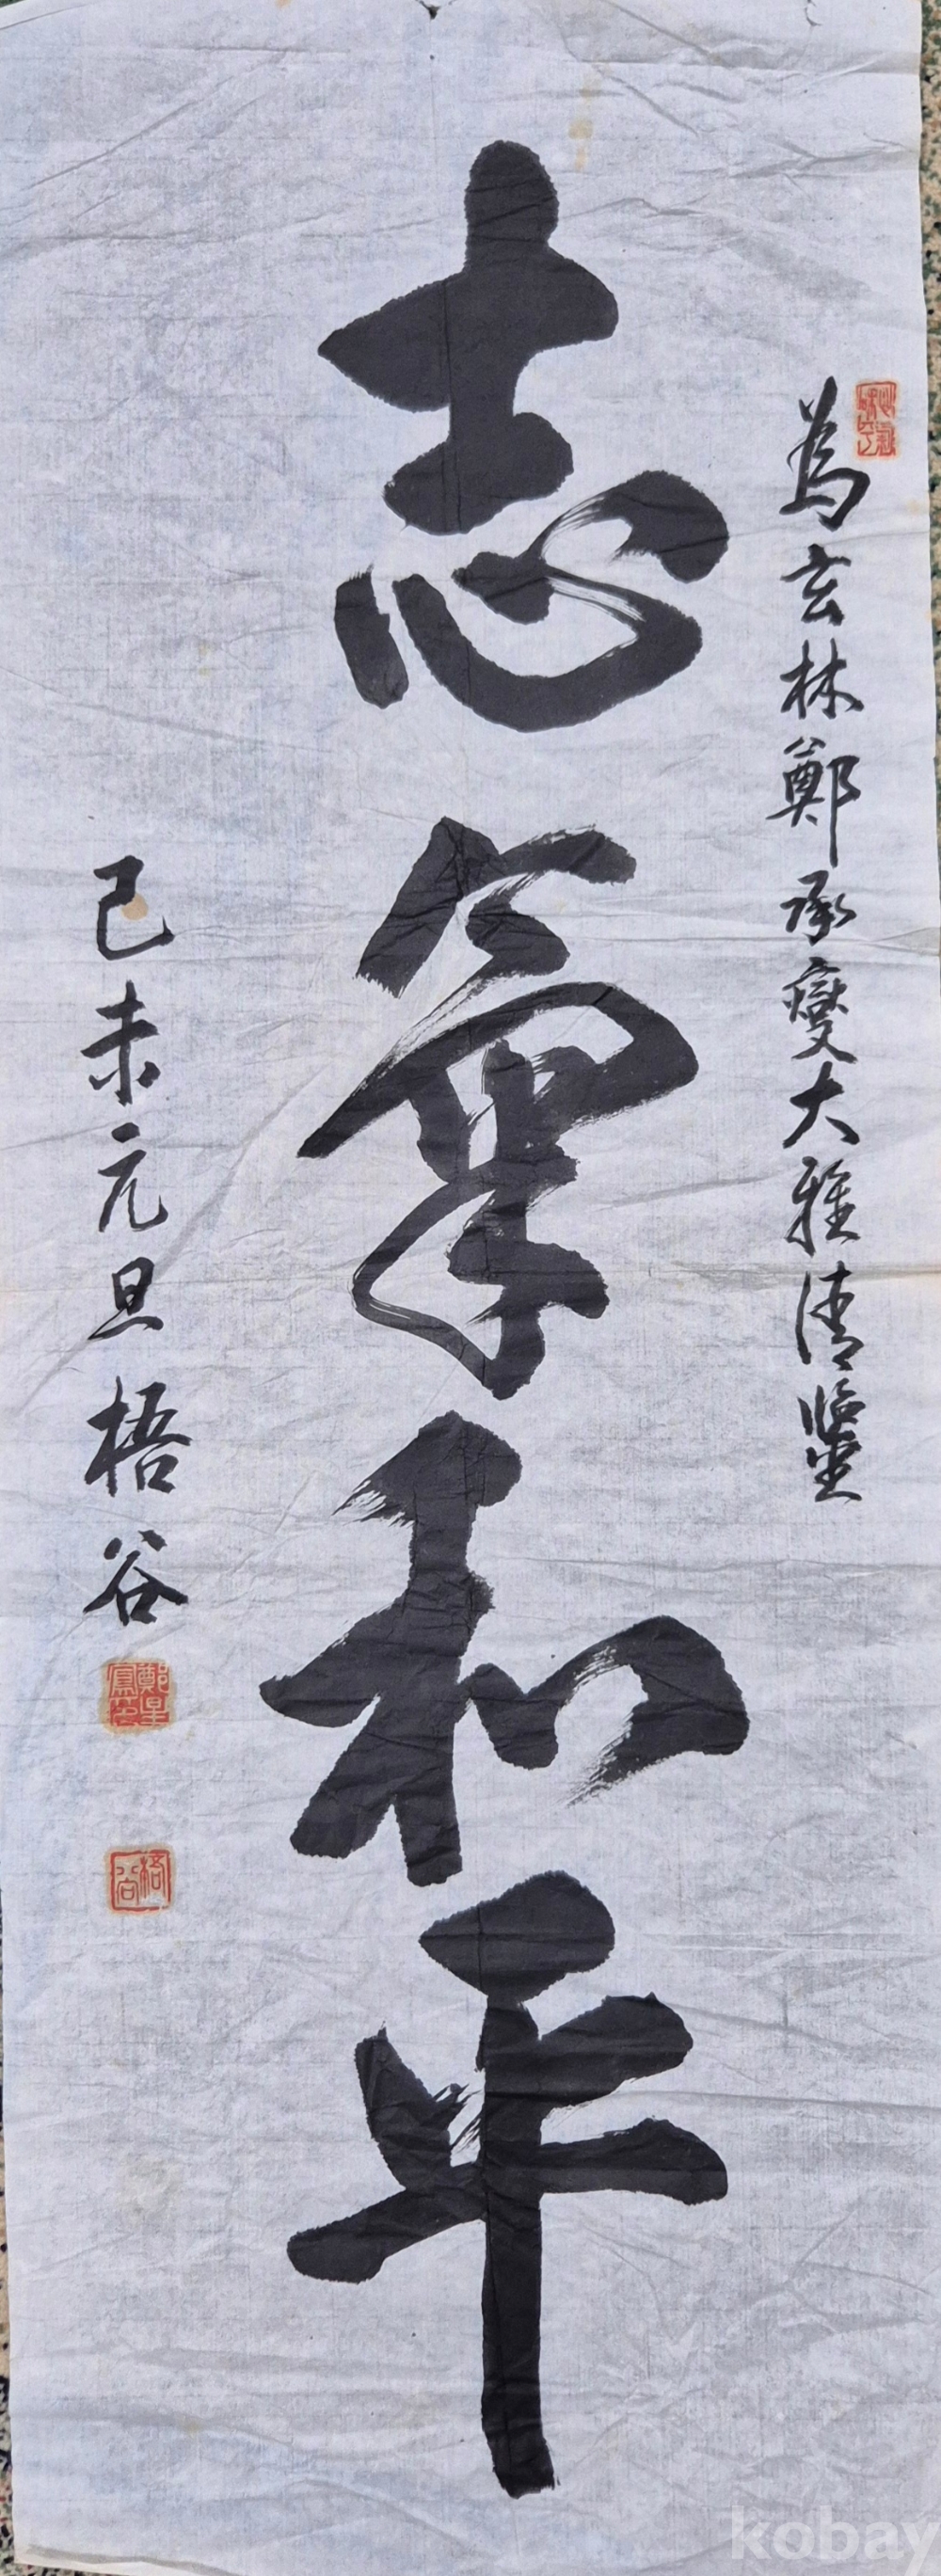 爲玄林鄭承燮大雅清鑒
志氣和平
己未元旦 梧谷
梧谷
kobay